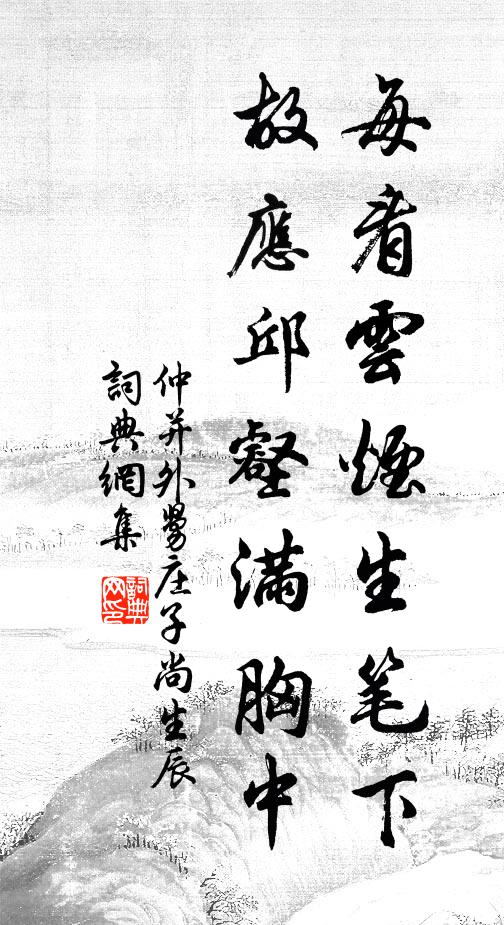 每看雲煙生笔下
故應邱壑滿胸中
仲并外舅庄子尚生辰
詞典網集
詞典
网印